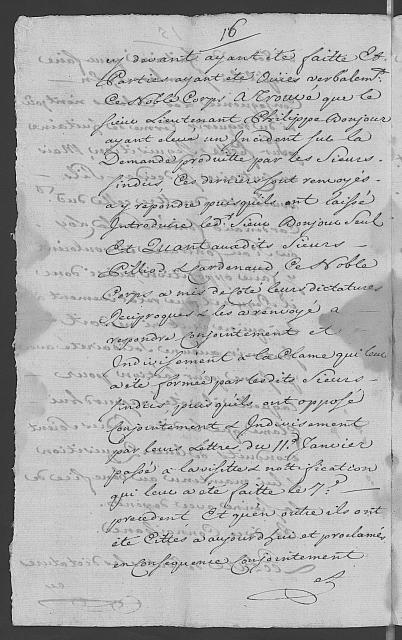 16
cy devant ayant été faitte Et
Parties ayant été Ouïes verbalemt.
Ce Noble Corps A trouvé que le
sieur Lieutenant Philippe Bonjour
ayant élevé un Incident sur la
Demande produitte par les Sieurs
sindics, Ces derniers sont renvoyés
a y répondre puisquils ont laissé
Introduire ledt. Sieur Bonjour Seul
Et Quant auxdits Sieurs
Pilliod & Lardenaud Ce Noble
Corps a mis de coté leurs dictatures
Réciproques & les a renvoyé a
repondre conjointement et
Indivisément a la Clame qui leur
a été formée par lesdits Sieurs
sindics puisquils ont opposé
Conjointement & Indivisement
par leurs Lettres du 11e. Janvier
posée a la visitte & nottification
qui leur a été faitte le 7e.
precedent Et quen outre ils ont
été Cittés a aujourdhui et proclamés
en Consequence Conjointement